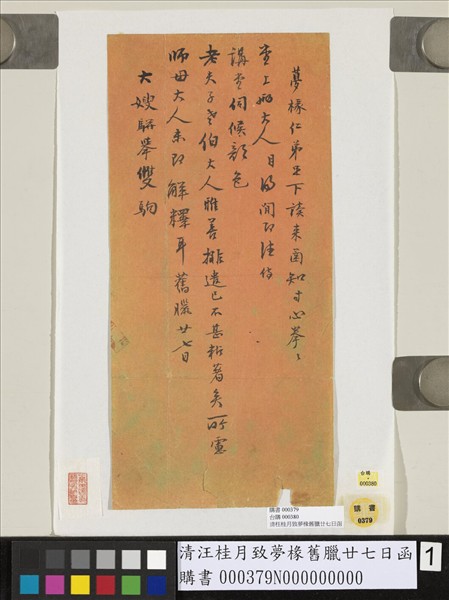 夢椽仁弟足下讀來函知寸心拳〻
堂上兩大人目
講堂伺候顏色
老夫子老伯大人雖善排遣已不甚
師母大人未即解釋耳舊臘廿七日
大嫂駢舉雙駒
台購
000380
購書
0379
購書 000379
台購 000380
清汪桂月致夢椽舊臘廿七日函
清汪桂月致夢椽舊臘廿七日函
購書 000379N000000000
1